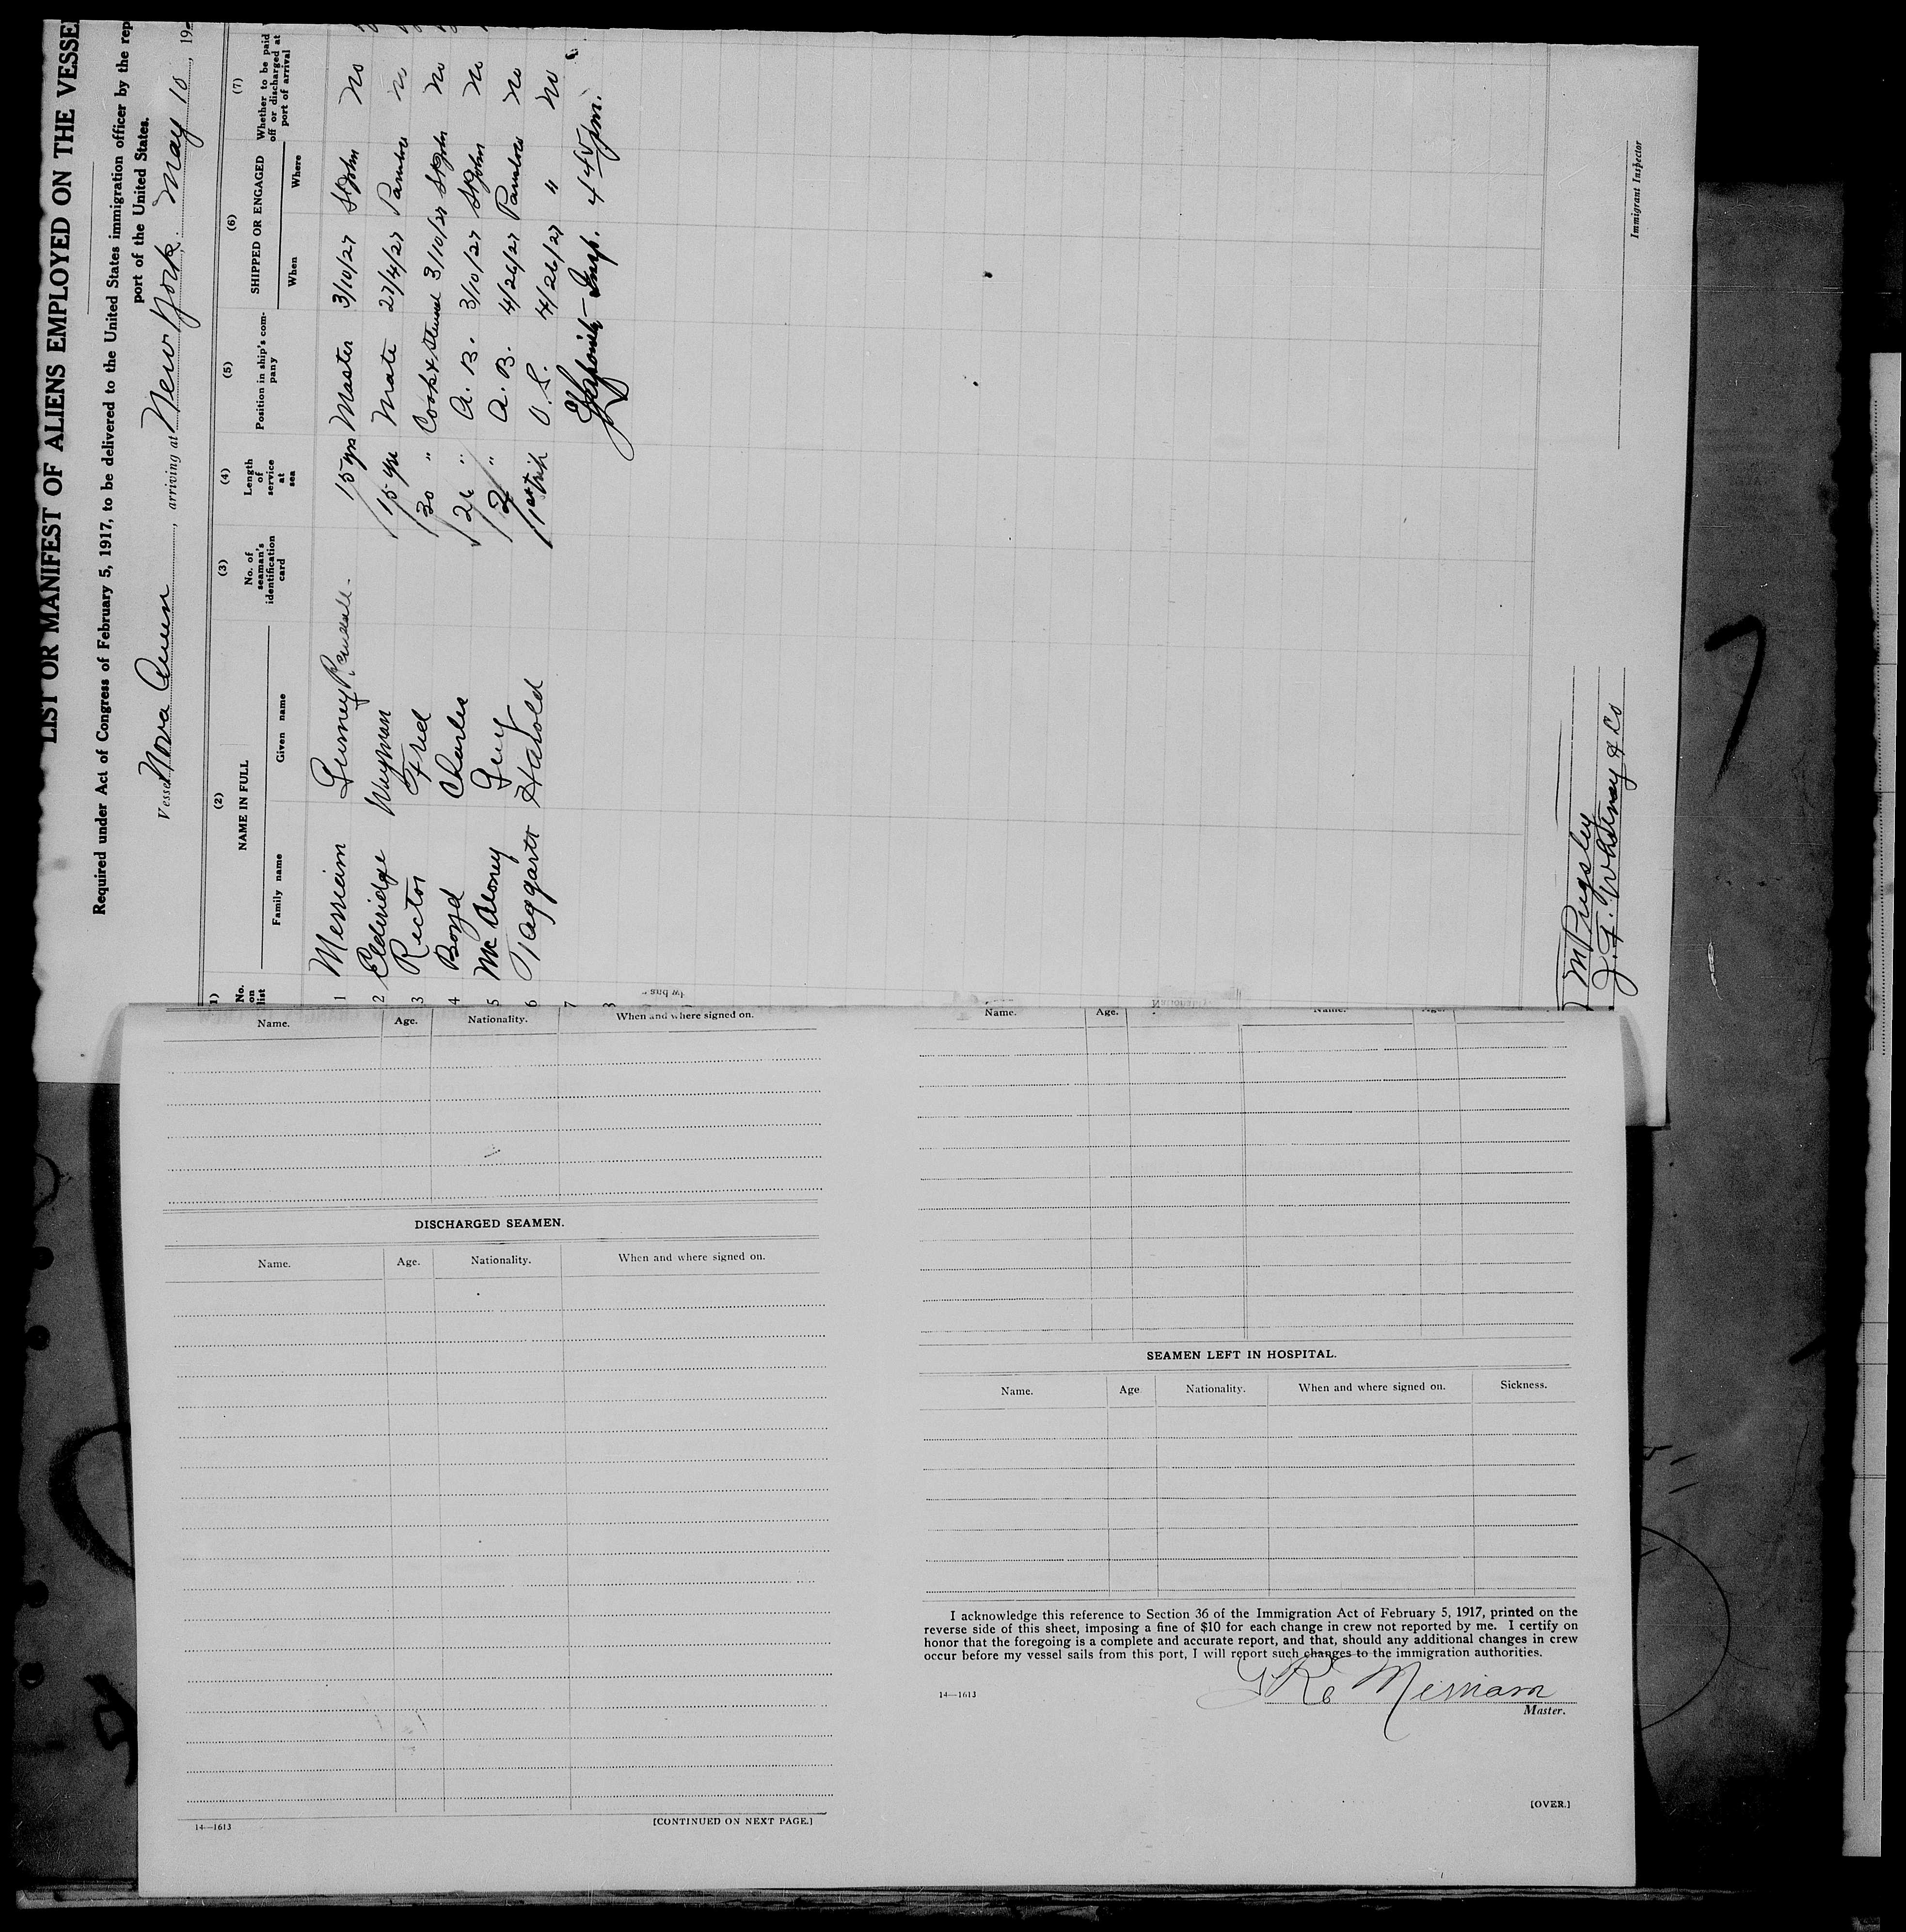 LIST OR MANIFEST OF ALIENS EMPLOYED ON THE VESSE
Required under Act of Congress of February 5, 1917, to be delivered to the United States immigration officer by the rep
port of the United States.
Vessel Nova Queen, arriving at New York, May 10, 19
(1) (2) (3) (4) (5) (6) (7)
No. on list
NAME IN FULL
Family name Given name
No. of seaman's identification card
Length of service at sea
Position in ship's company
SHIPPED OR ENGAGED
When Where
Whether to be paid off or discharged at port of arrival
1 Merriam Gurney Randall 15 yrs Master 3/10/27 St John No
2 Elderidge Wayman 15 yrs Mate 27/4/27 No
3 Rector Fred 30 " Cook & Steward 3/10/27 St John No
4 Boyd Charles 26 " A. B. 3/10/27 St John No
5 McAloney Guy 2 " A. B. 4/26/27 No
6 Taggart Harold 1st trip O. S. 4/26/27 " No
7
Insp. 4 45 pm.
8
M Pugsley
J. F. Whitney & Co
Immigrant Inspector
Name. Age. Nationality. When and where signed on.
DISCHARGED SEAMEN.
Name. Age. Nationality. When and where signed on.
14—1613 [CONTINUED ON NEXT PAGE.]
Name. Age. Name. Age.
SEAMEN LEFT IN HOSPITAL.
Name. Age Nationality. When and where signed on. Sickness.
I acknowledge this reference to Section 36 of the Immigration Act of February 5, 1917, printed on the
reverse side of this sheet, imposing a fine of $10 for each change in crew not reported by me. I certify on
honor that the foregoing is a complete and accurate report, and that, should any additional changes in crew
occur before my vessel sails from this port, I will report such changes to the immigration authorities.
14—1613
G R Merriam
Master.
[OVER.]